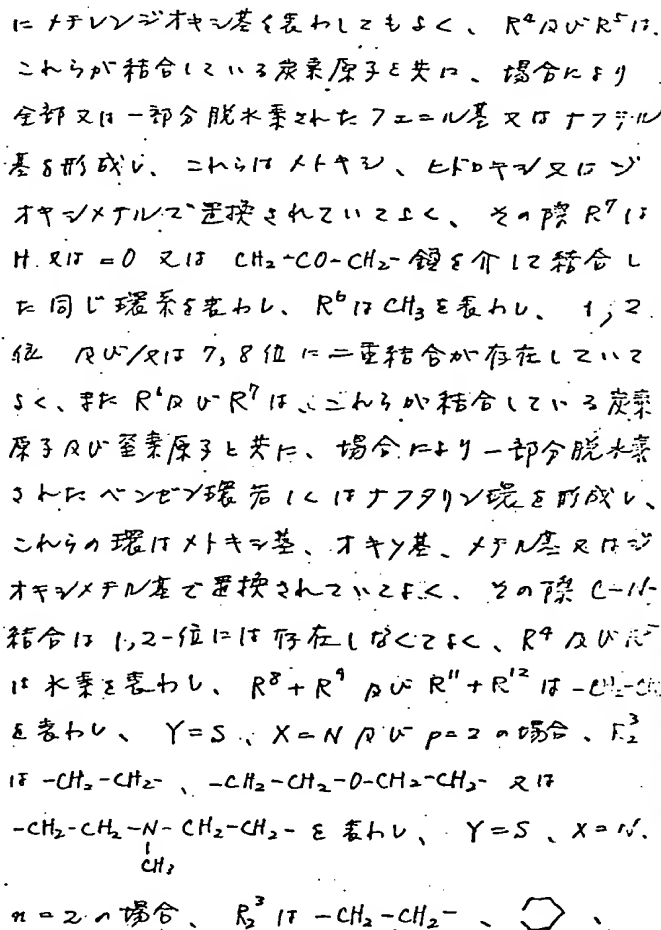 にメチレンジオキシ基を表わしてもよく、R⁴及びR⁵は、
これらが結合している炭素原子と共に、場合により
全部又は一部分脱水素されたフェニル基又はナフチル
基を形成し、これらはメトキシ、ヒドロキシ又はジ
オキシメチルで置換されていてよく、その際R⁷は
H又は=O又はCH₂-CO-CH₂-鎖を介して結合し
た同じ環系を表わし、R⁶はCH₃を表わし、1,2
位 及び/又は7,8位に二重結合が存在していて
よく、またR⁶及びR⁷は、これらが結合している炭素
原子及び窒素原子と共に、場合により一部分脱水素
されたベンゼン環若しくはナフタリン環を形成し、
これらの環はメトキシ基、オキソ基、メチル基又はジ
オキシメチル基で置換されていてよく、その際C-N-
結合は1,2-位には存在しなくてよく、R⁴及び
は水素を表わし、R⁸+R⁹及びR¹¹+R¹²は
を表わし、Y=S、X=N及びp=2の場合、R₂³
は-CH₂-CH₂-、-CH₂-CH₂-O-CH₂-CH₂-又は
-CH₂-CH₂-N-CH₂-CH₂-を表わし、Y=S、X=N、
CH₃
n=2の場合、R₂³は-CH₂-CH₂-、、